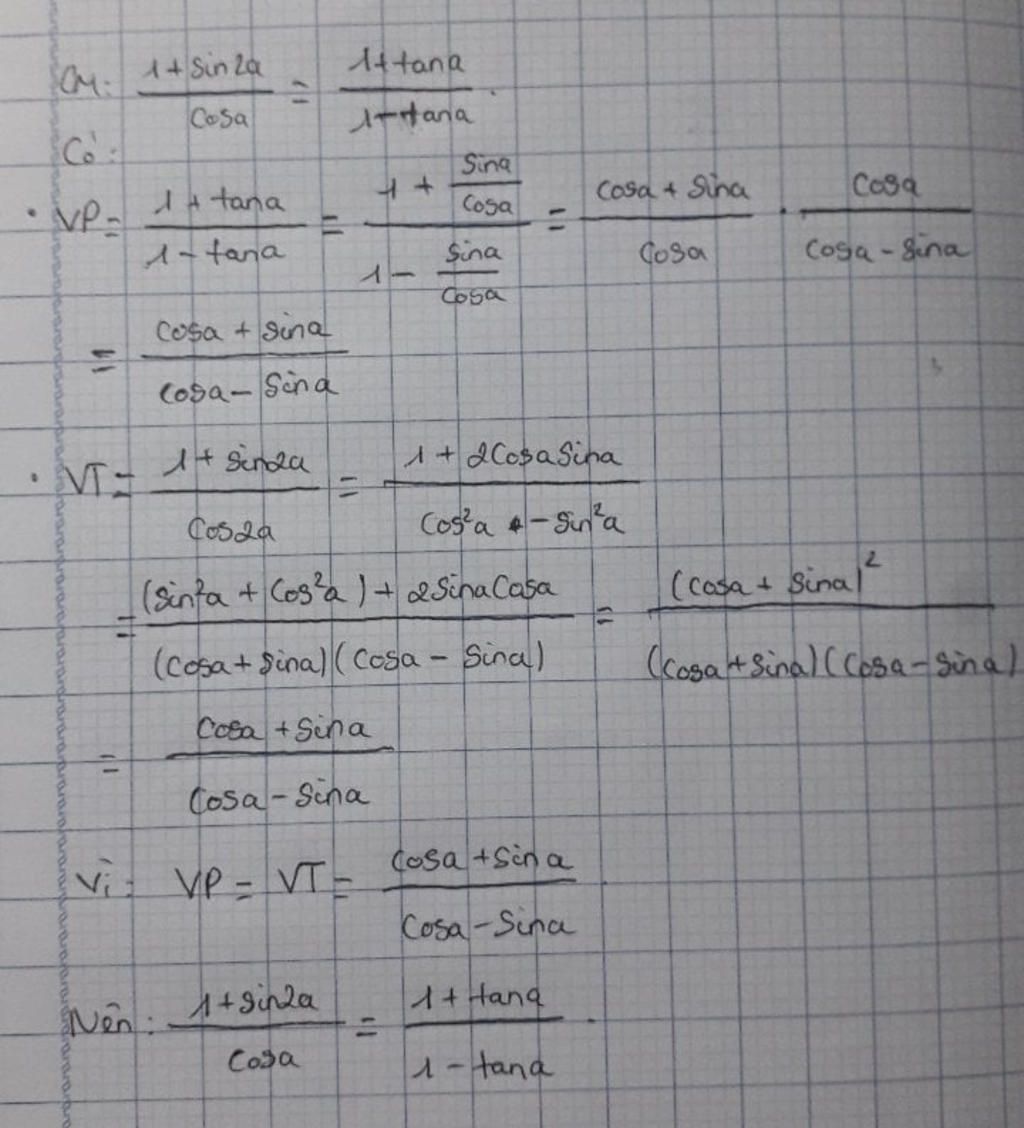 CM: (1 + sin2a)/(cosa) = (1 + tana)/(1 - tana).
Có:
• VP = (1 + tana)/(1 - tana) = (1 + sina/cosa)/(1 - sina/cosa) = (cosa + sina)/(cosa) . (cosa)/(cosa - sina)
= (cosa + sina)/(cosa - sina)
• VT = (1 + sin2a)/(cos2a) = (1 + 2cosasina)/(cos²a - sin²a)
= ((sin²a + cos²a) + 2sinacosa)/((cosa + sina)(cosa - sina)) = (cosa + sina)²/((cosa + sina)(cosa - sina))
= (cosa + sina)/(cosa - sina)
Vì: VP = VT = (cosa + sina)/(cosa - sina)
Nên: (1 + sin2a)/(cosa) = (1 + tana)/(1 - tana).